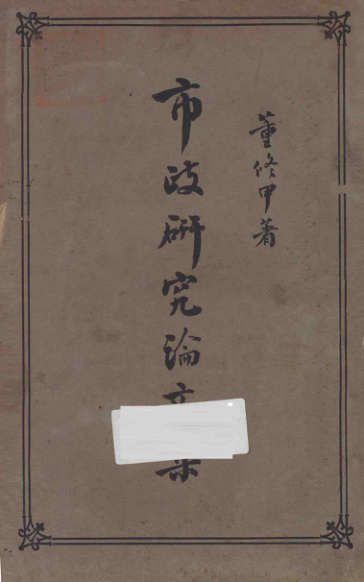 董修甲著
市政研究論